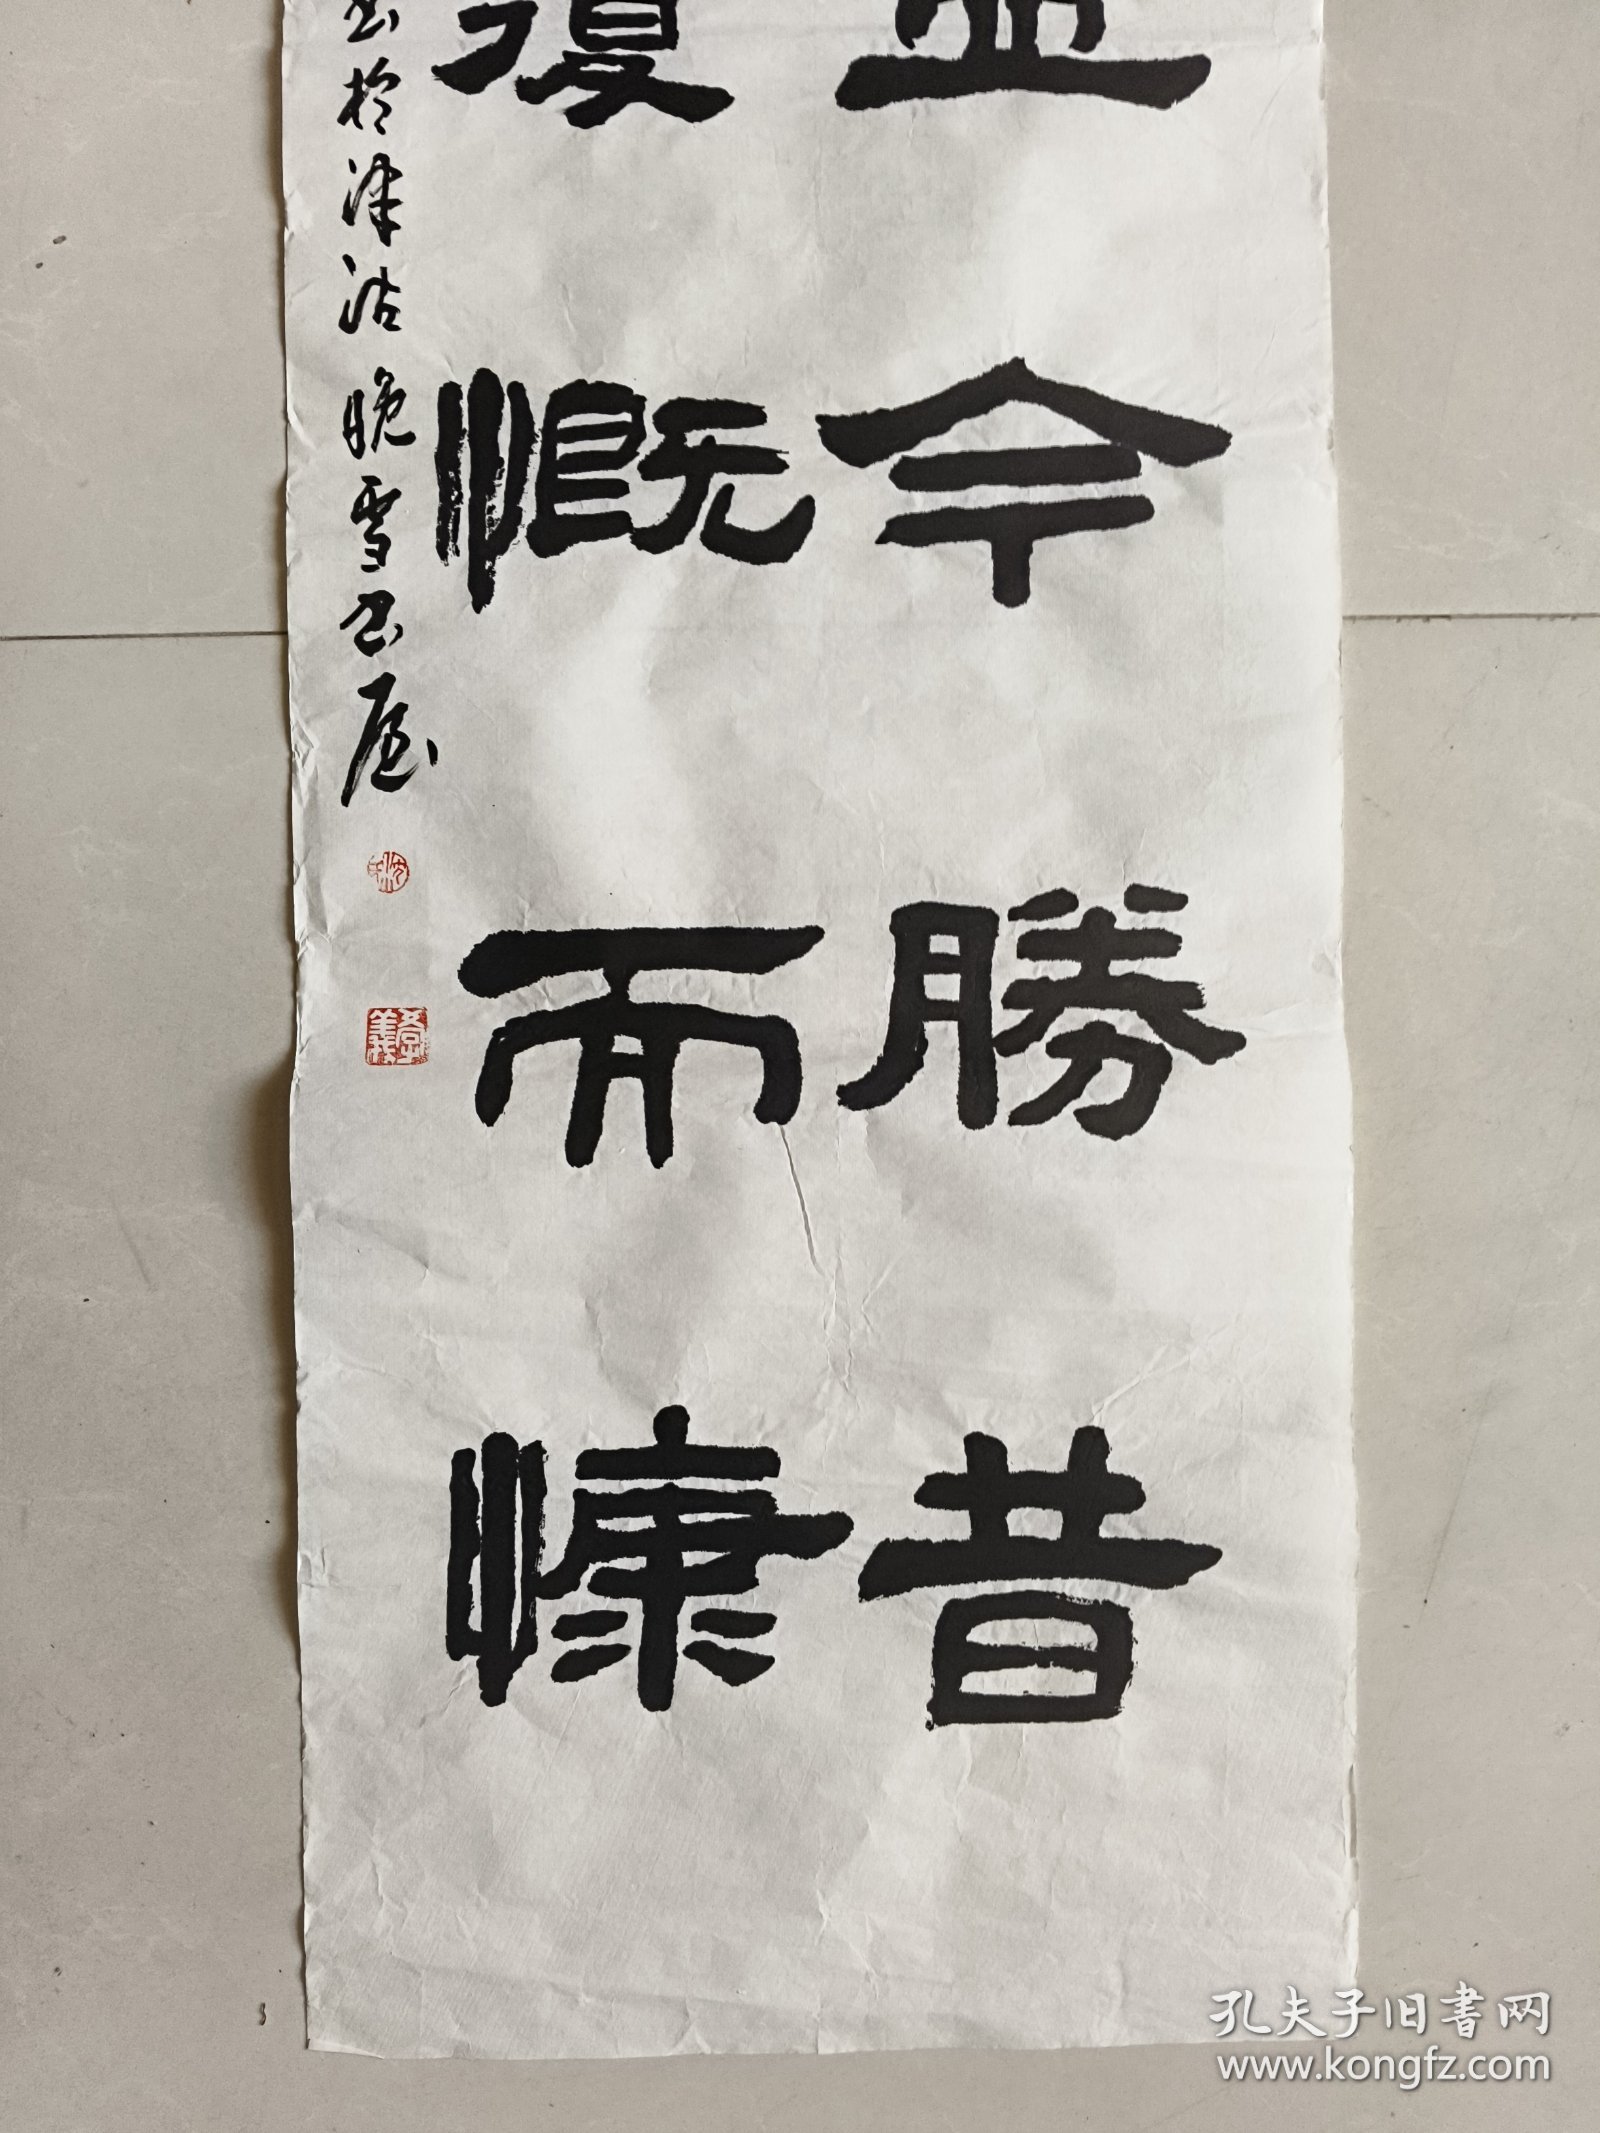 盘今勝昔
復慨而慷
书於津沽晚雪书屋
孔夫子旧书网
www.kongfz.com